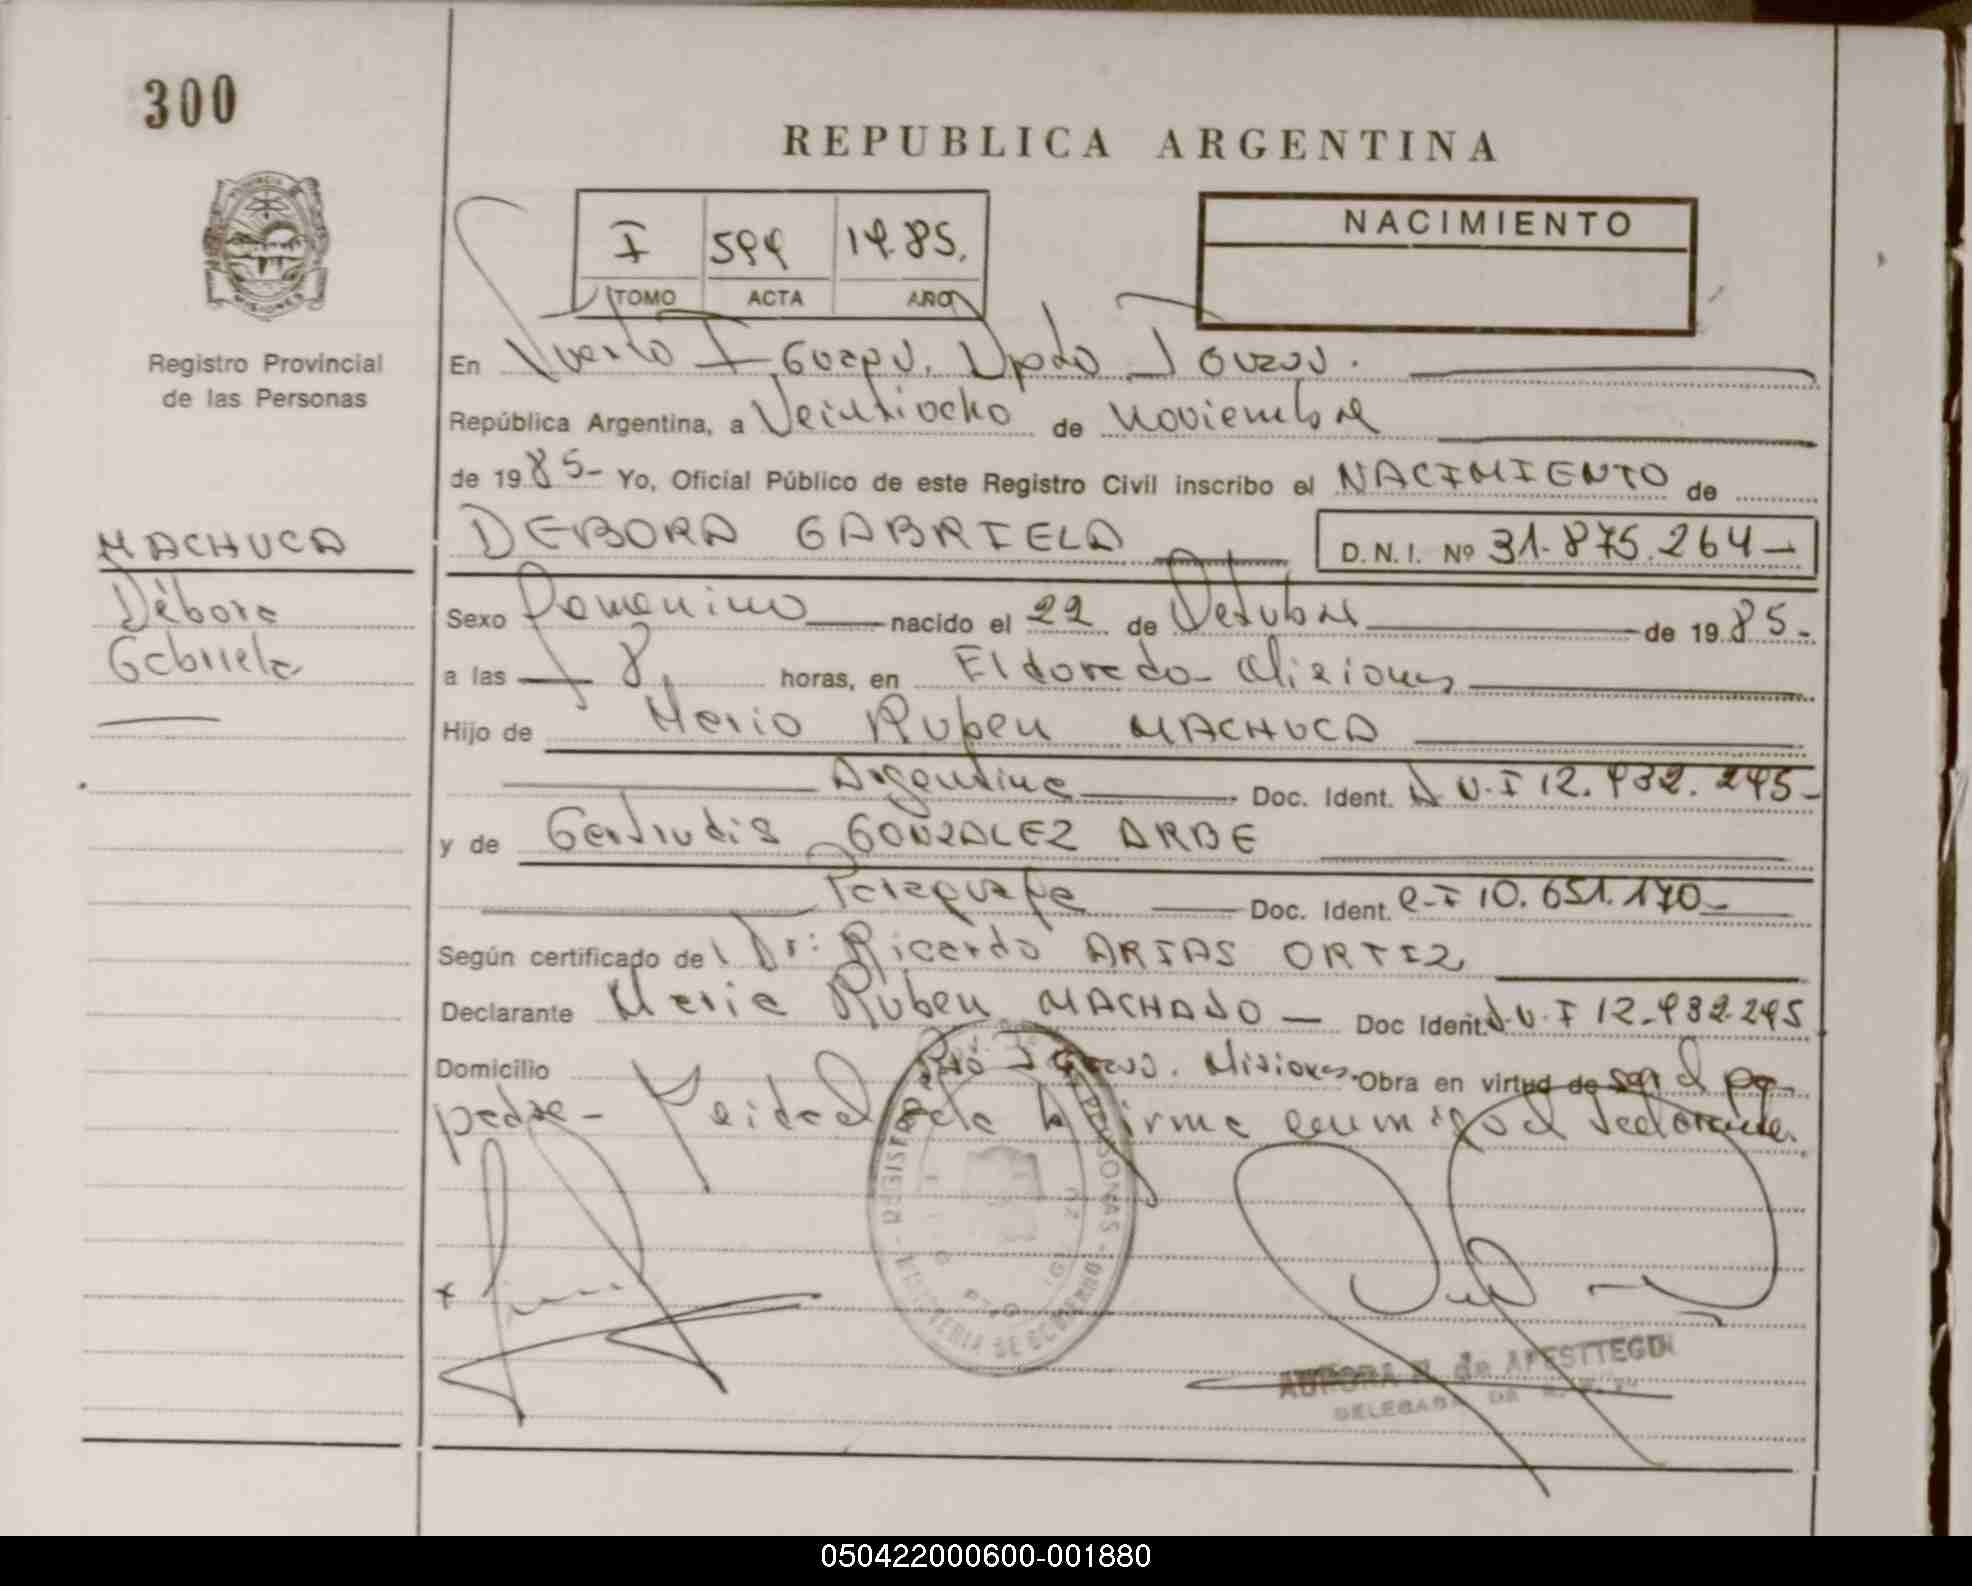 300
REPUBLICA ARGENTINA
I 599 1985.
TOMO ACTA AÑO
NACIMIENTO
PROVINCIA
MISIONES
Registro Provincial
de las Personas
En Puerto Iguazú. Dpto Iguazú.
República Argentina, a Veintiocho de noviembre
de 1985- Yo, Oficial Público de este Registro Civil inscribo el NACIMIENTO de
MACHUCA
Débora
Gabriela
DEBORA GABRIELA D.N.I. Nº 31.875.264-
Sexo Femenino nacido el 22 de Octubre de 1985-
a las 8, horas, en Eldorado- Misiones
Hijo de Mario Ruben MACHUCA
Argentina Doc. Ident. D.N.I 12.932.295-
y de Gertrudis GONZALEZ ARBE
Paraguaya Doc. Ident. C.I 10.651.170-
Según certificado del Dr: Ricardo ARIAS ORTIZ
Declarante Mario Ruben MACHADO - Doc Ident. D.N.I 12.932.295
Domicilio Pto Iguazú. Misiones. Obra en virtud de ser el
padre- Leida el acta la firma conmigo el declarante.
REGISTRO PERSONAS
MINISTERIO DE GOBIERNO
AURORA Z. de APESTTEGUI
DELEGADA DE R. P. P.
050422000600-001880